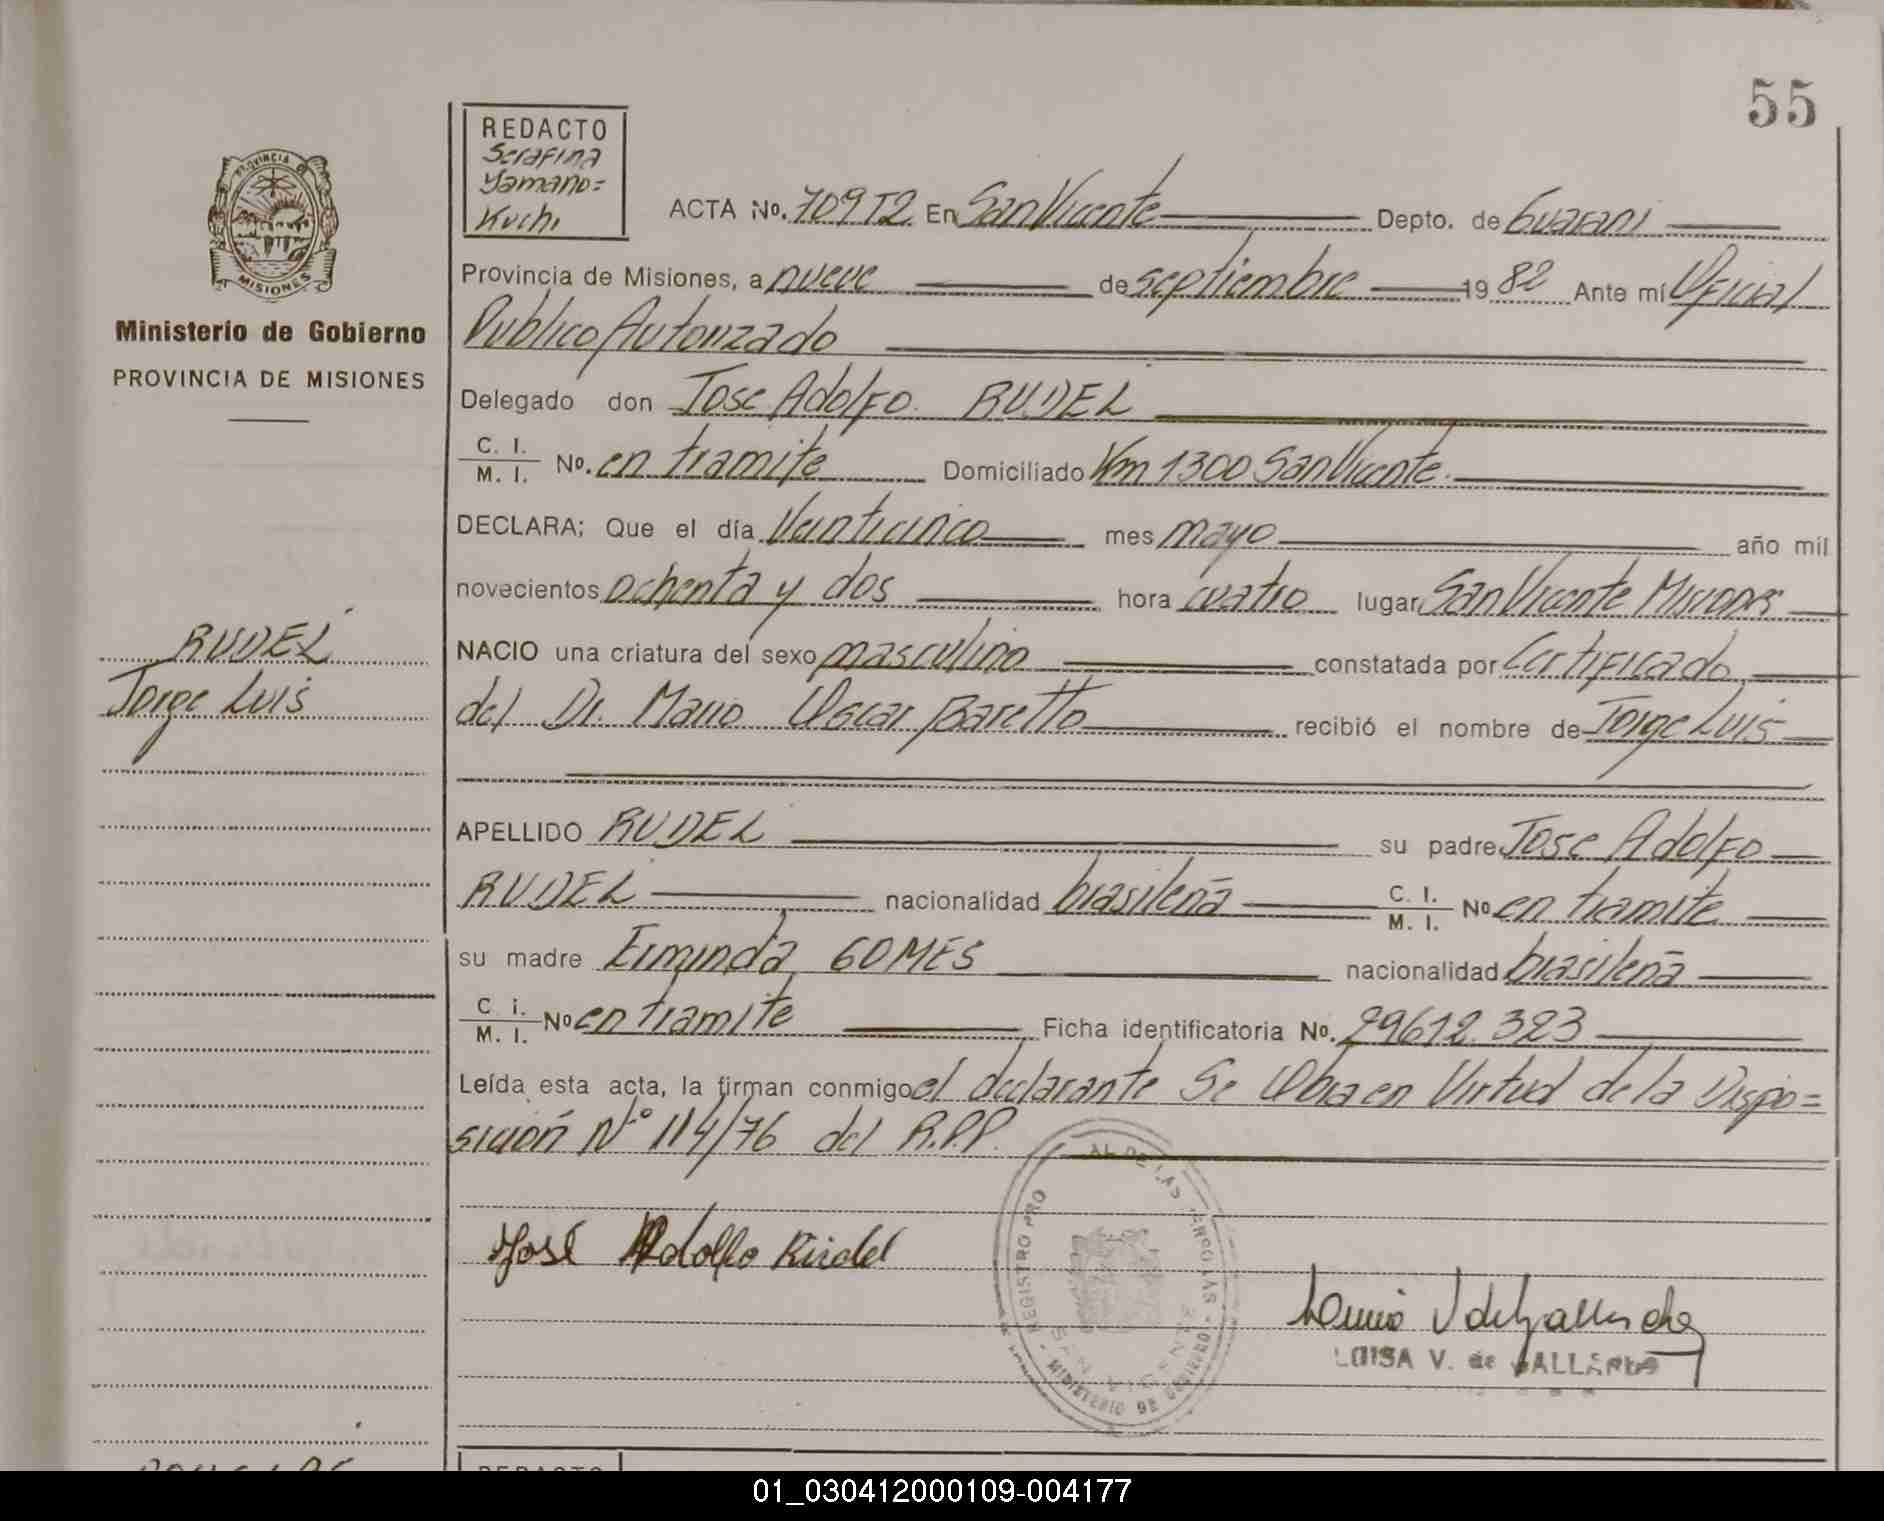 55
REDACTO
Serafina
Yamano=
Kuchi
ACTA No. 709 T2 En San Vicente Depto. de Guarani
Provincia de Misiones, a nueve de septiembre 1982 Ante mí Oficial
Publico Autorizado
Delegado don Jose Adolfo RUDEL
C. I.
M. I. No. en tramite Domiciliado Km 1300 San Vicente.
DECLARA; Que el día Veinticinco mes mayo año mil
novecientos ochenta y dos hora cuatro lugar San Vicente Misiones
NACIO una criatura del sexo masculino constatada por Certificado
del Dr. Mario Oscar Baretto recibió el nombre de Jorge Luis
APELLIDO RUDEL su padre Jose Adolfo
RUDEL nacionalidad brasileña C. I.
M. I. No en tramite
su madre Erminda GOMES nacionalidad brasileña
C. i.
M. I. No en tramite Ficha identificatoria No. 29612.323
Leída esta acta, la firman conmigo el declarante Se Obra en Virtud de la Dispo=
sición N° 114/76 del R.P.P.
José Adolfo Rudel
LUISA V. de GALLARDO
REGISTRO PRO AL DE LAS
SAN VICENTE
PROVINCIA
MISIONES
Ministerio de Gobierno
PROVINCIA DE MISIONES
RUDEL
Jorge Luis
REDACTO
01_030412000109-004177